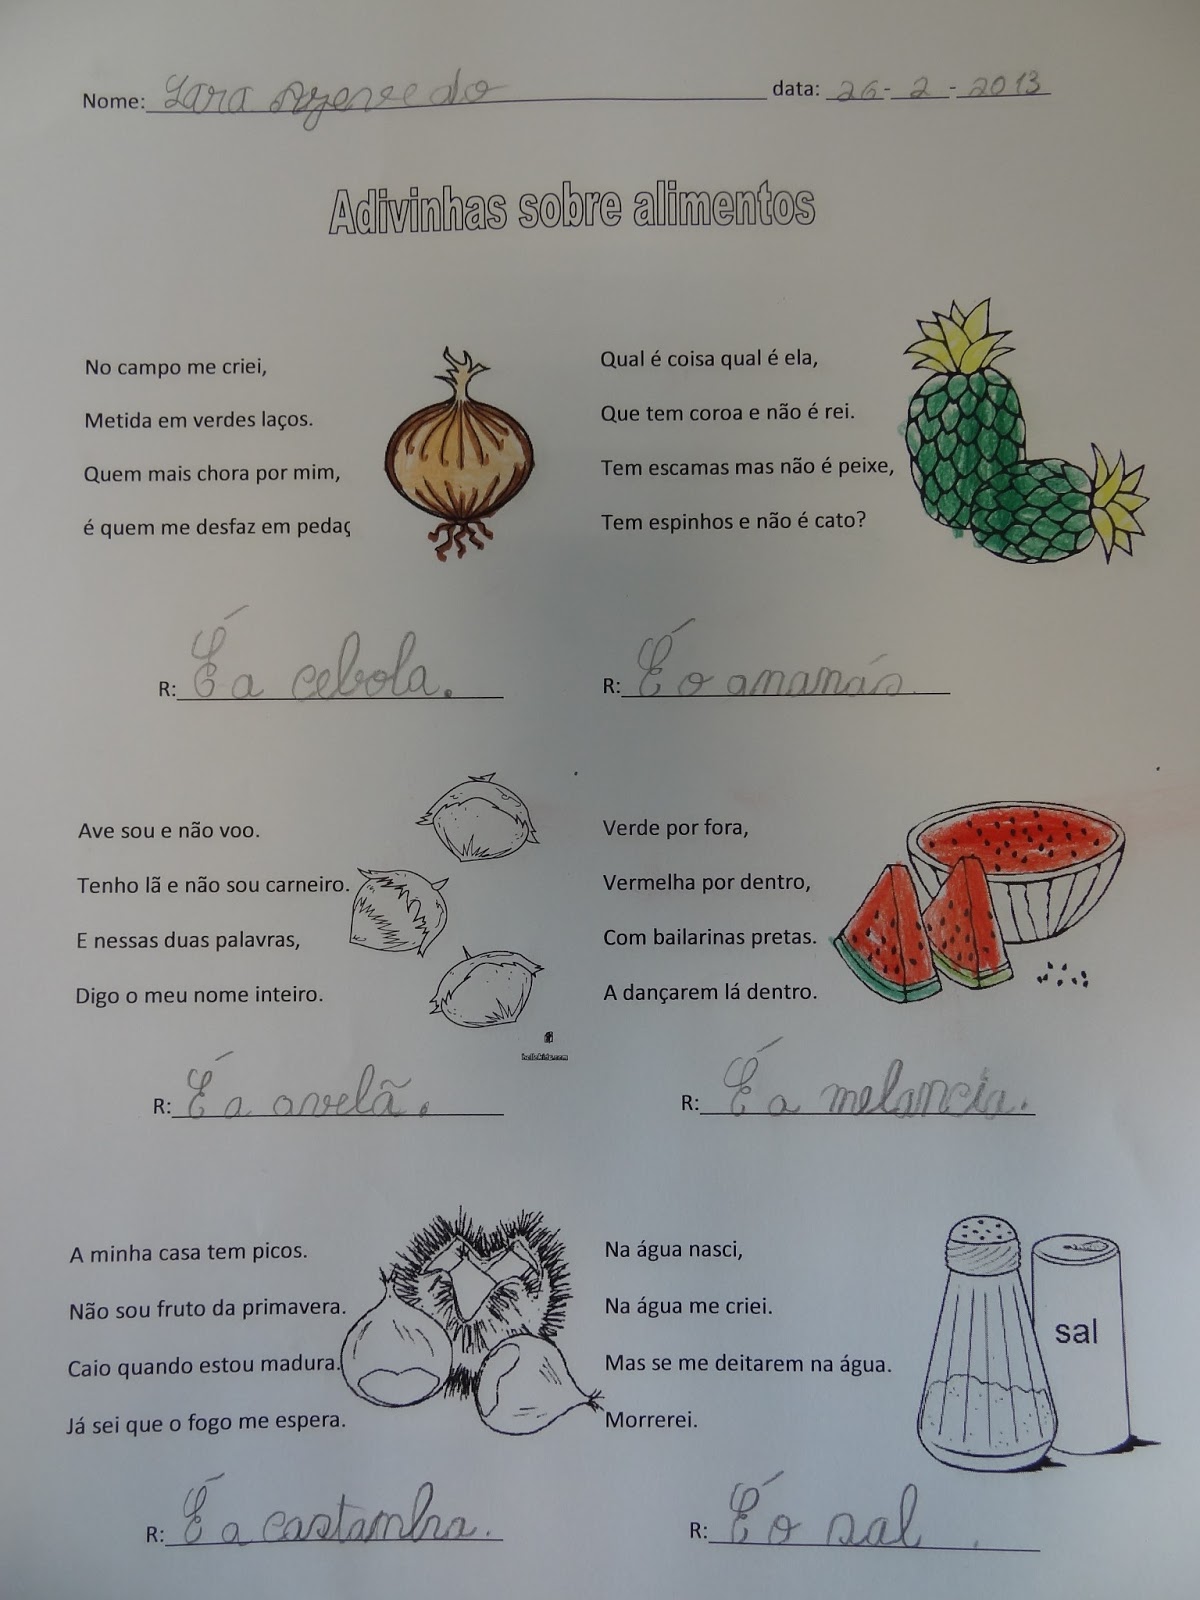 Nome: Lara Azevedo data: 26-2-2013
Adivinhas sobre alimentos
No campo me criei,
Metida em verdes laços.
Quem mais chora por mim,
é quem me desfaz em pedaç
R: É a cebola.
Qual é coisa qual é ela,
Que tem coroa e não é rei.
Tem escamas mas não é peixe,
Tem espinhos e não é cato?
R: É o ananás.
Ave sou e não voo.
Tenho lã e não sou carneiro.
E nessas duas palavras,
Digo o meu nome inteiro.
R: É a avelã.
Verde por fora,
Vermelha por dentro,
Com bailarinas pretas.
A dançarem lá dentro.
R: É a melancia.
A minha casa tem picos.
Não sou fruto da primavera.
Caio quando estou madura.
Já sei que o fogo me espera.
R: É a castanha.
Na água nasci,
Na água me criei.
Mas se me deitarem na água.
Morrerei.
sal
R: É o sal.